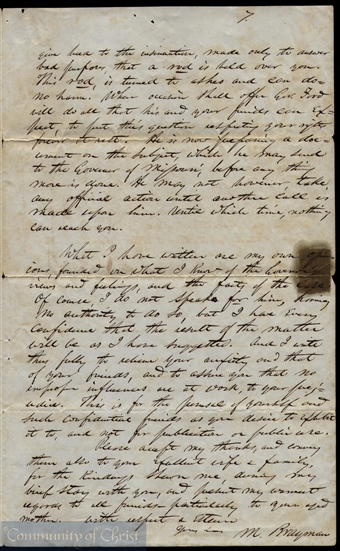 7.
give heed to the insinuation, made only to answer
bad purposes that a rod is held over you.
This rod, is turned to ashes and can do
no harm. When occasion shall offer Gov. Ford
will do all that his and your friends can Ex-
pect, to put this question respecting your
forever at rest. He is now preparing a doc-
ument on the subject, which he may send
to the Governor of Missouri, before any thing
more is done. He may not however, take
any official action until another call is
made upon him. Until which time, nothing
can reach you.
What I have written are my own opin-
ions, founded on what I know of the Governor's
views and feelings, and the facts of the case
Of course, I do not speak for him, having
no authority to do so, but I have Every
confidence that the result of the matter
will be as I have suggested. And I write
thus fully to relieve your anxiety, and that
of your friends, and to assure you that no
improper influences are at work, to your prej-
udice. This is for the perusal of yourself and
such confidential friends as you desire to exhibit
it to, and not for publication or public use.
Please accept my thanks, and convey
them also to your Excellent wife & family,
for the kindness shown me, during my
brief stay with you, and present my warmest
regards to all friends particularly to your aged
mother. With respect & Esteem
Yours &c
M. Brayman
Community of Christ